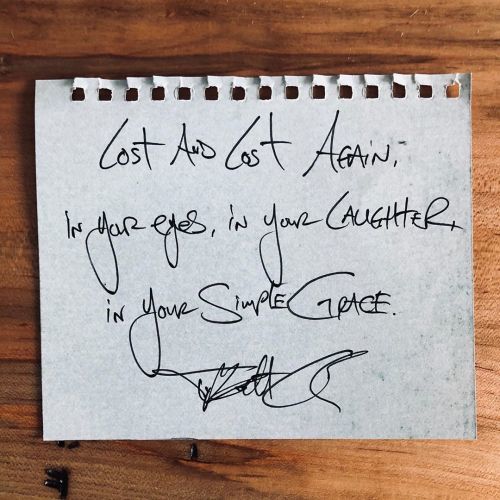 Lost And Lost Again,
in your eyes, in your LAUGHTER,
in your Simple Grace.